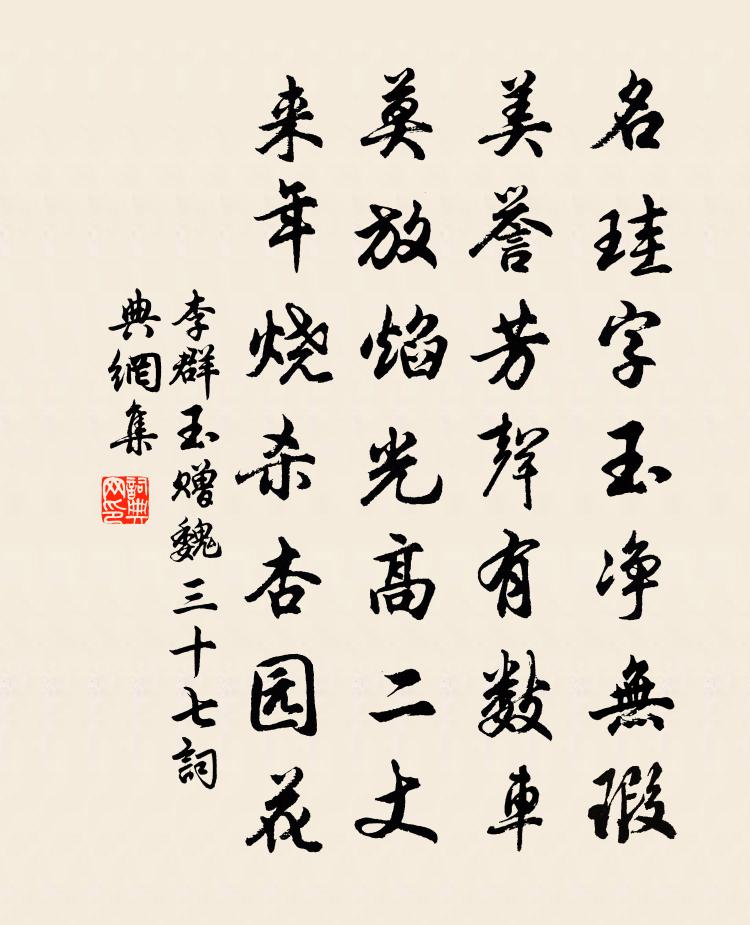 名珪字玉净無瑕
美誉芳聲有数車
莫放焰光高二丈
来年烧杀杏园花
李群玉赠魏三十七詞
典網集
詞典
网印